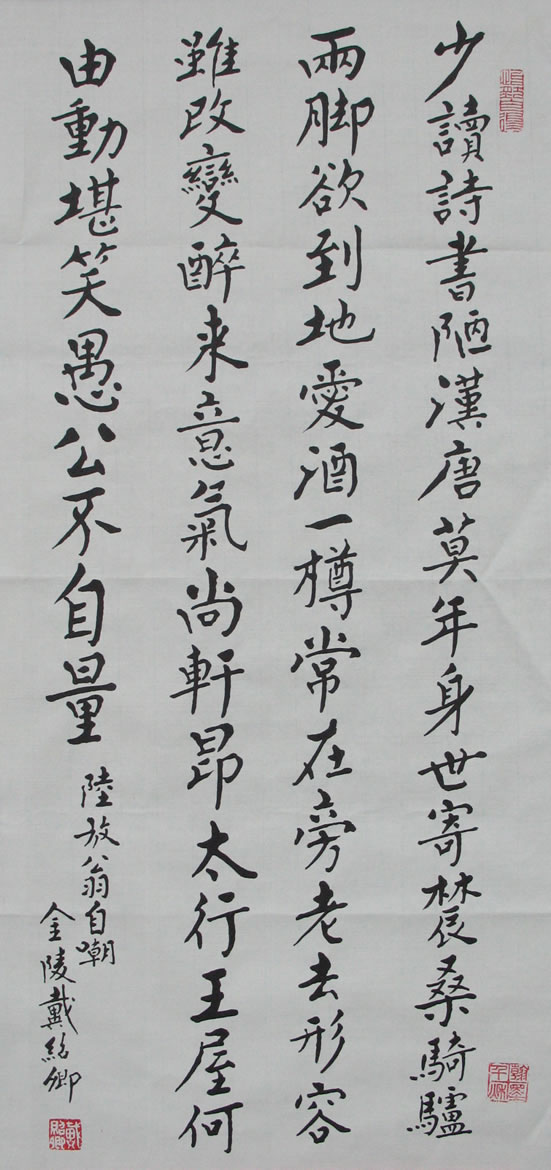 少讀詩書陋漢唐莫年身世寄辳桑騎驢
兩脚欲到地愛酒一樽常在旁老去形容
雖改變醉来意氣尚軒昂太行王屋何
由動堪笑愚公不自量
陸放翁自嘲
金陵戴紹卿